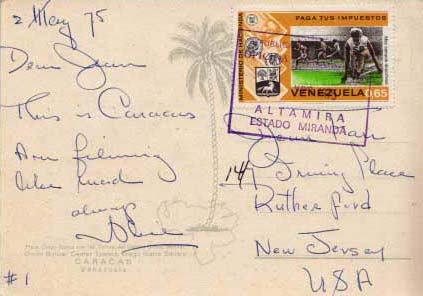 2 May 75
Dear Jean
This is Caracas
Am filming
like mad
always
PAGA TUS IMPUESTOS
MINISTERIO DE HACIENDA
VENEZUELA 0,65
ALTAMIRA
ESTADO MIRANDA
Jean
14 Irving Place
Rutherford
New Jersey
USA
CARACAS
Venezuela
#1